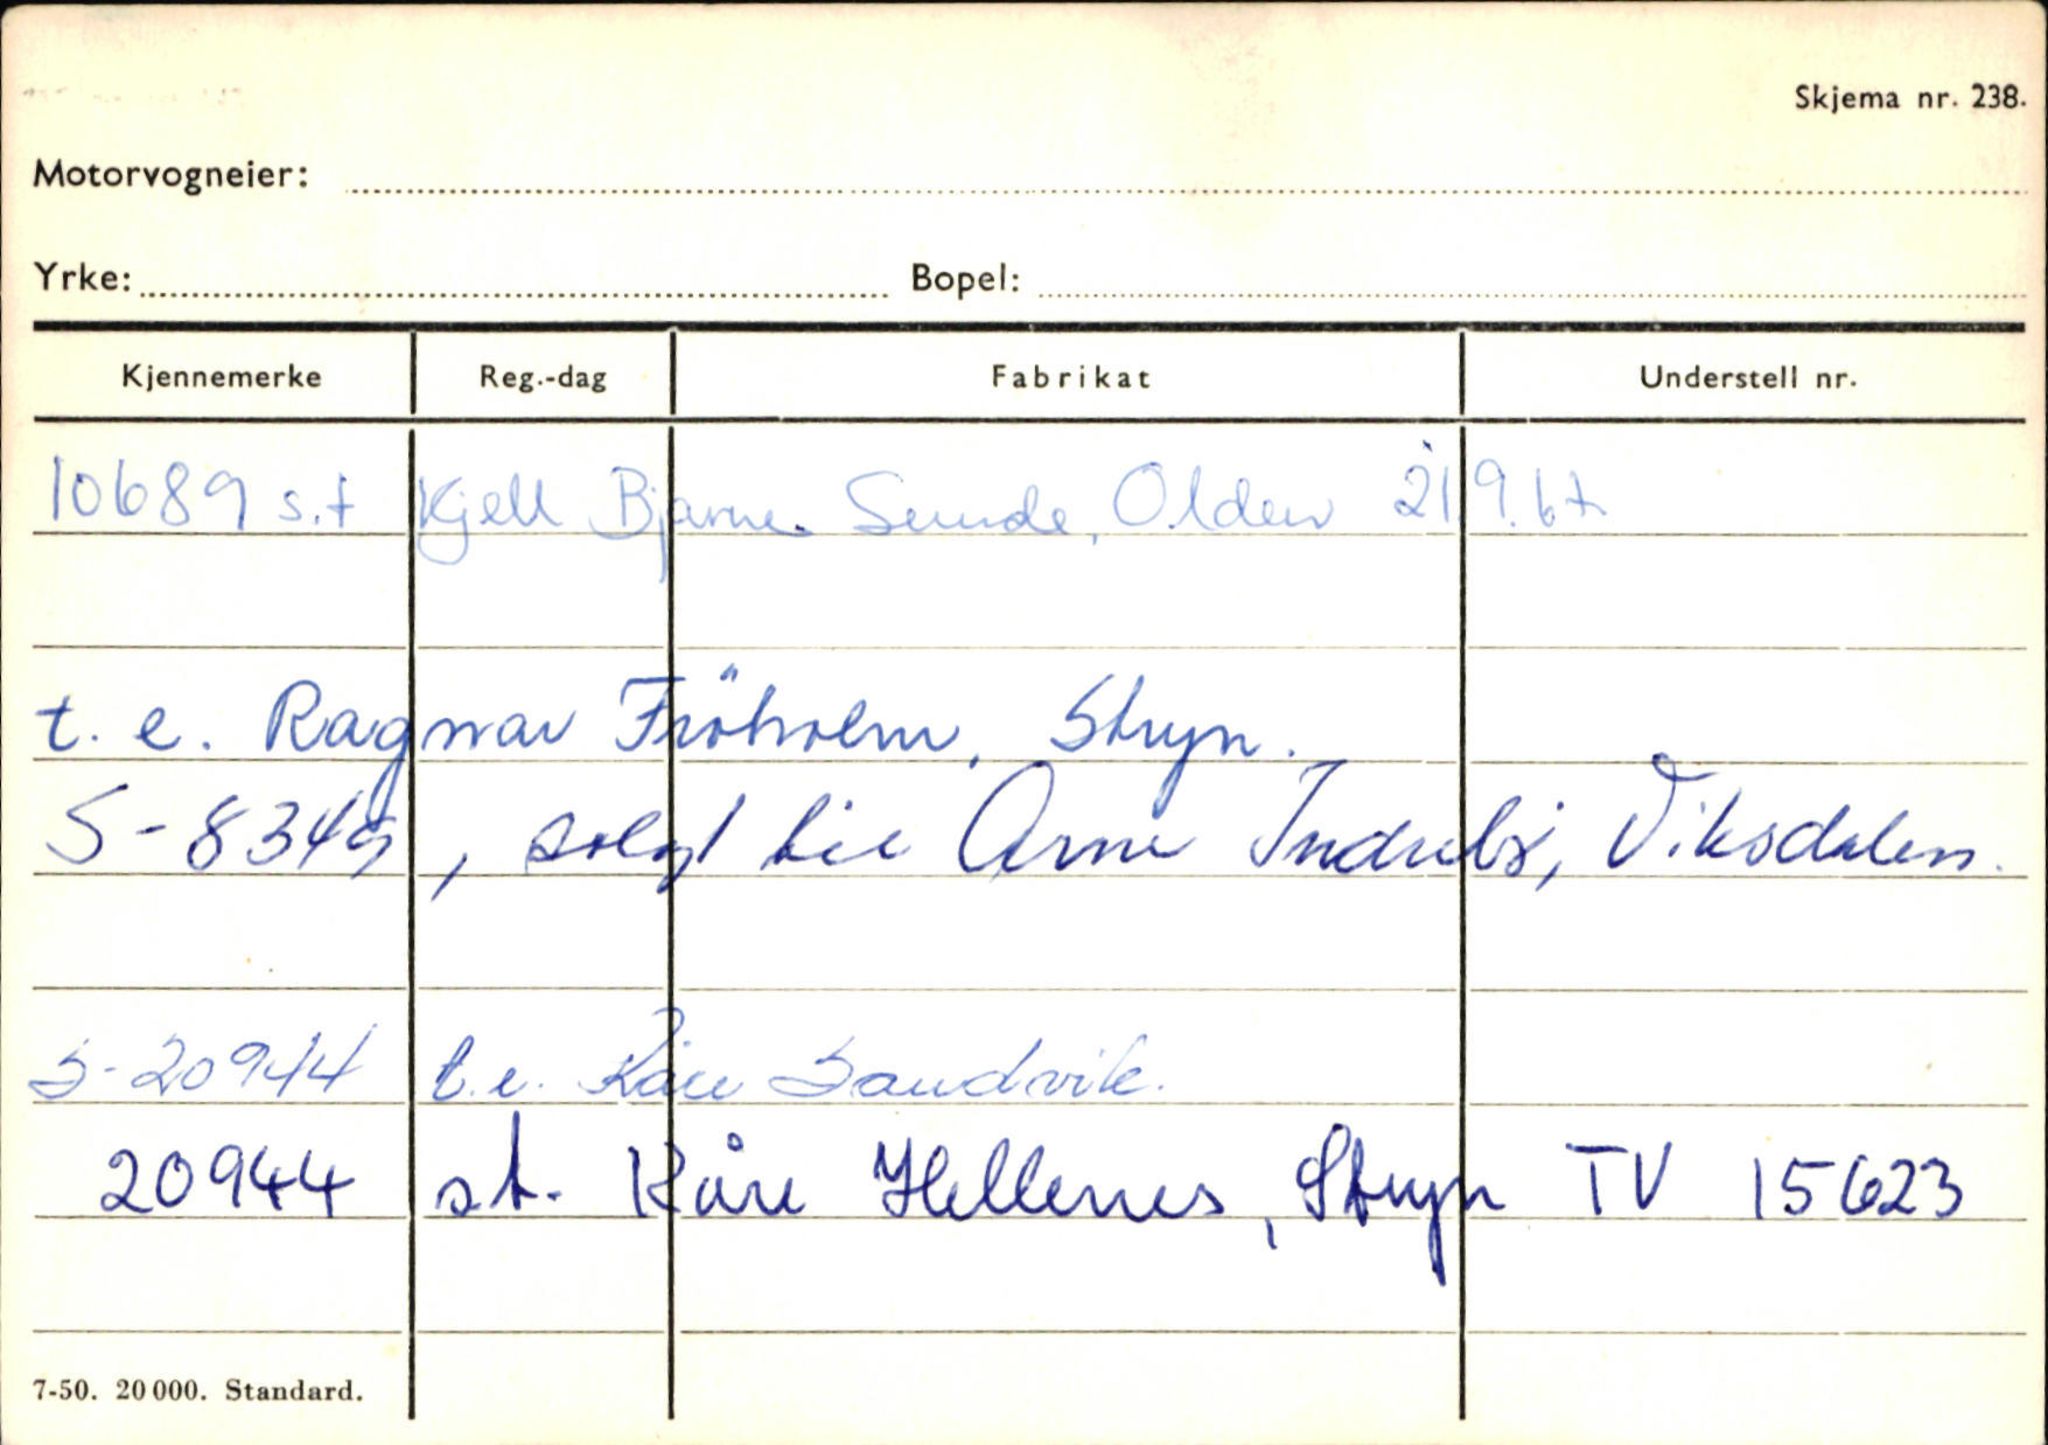 Skjema nr. 238.
Motorvogneier:
Yrke: Bopel:
Kjennemerke Reg.-dag Fabrikat Understell nr.
10689 s.t Kjell Bjarne Sunde, Olden 21.9.67
t. e. Ragnar Fröholm, Stryn.
S-8349, solgt til Arne Indrebö, Viksdalen.
S-20944 t.e. Kåre Sandvik.
20944 st. Kåre Hellenes, Stryn TV 15623
7-50. 20 000. Standard.